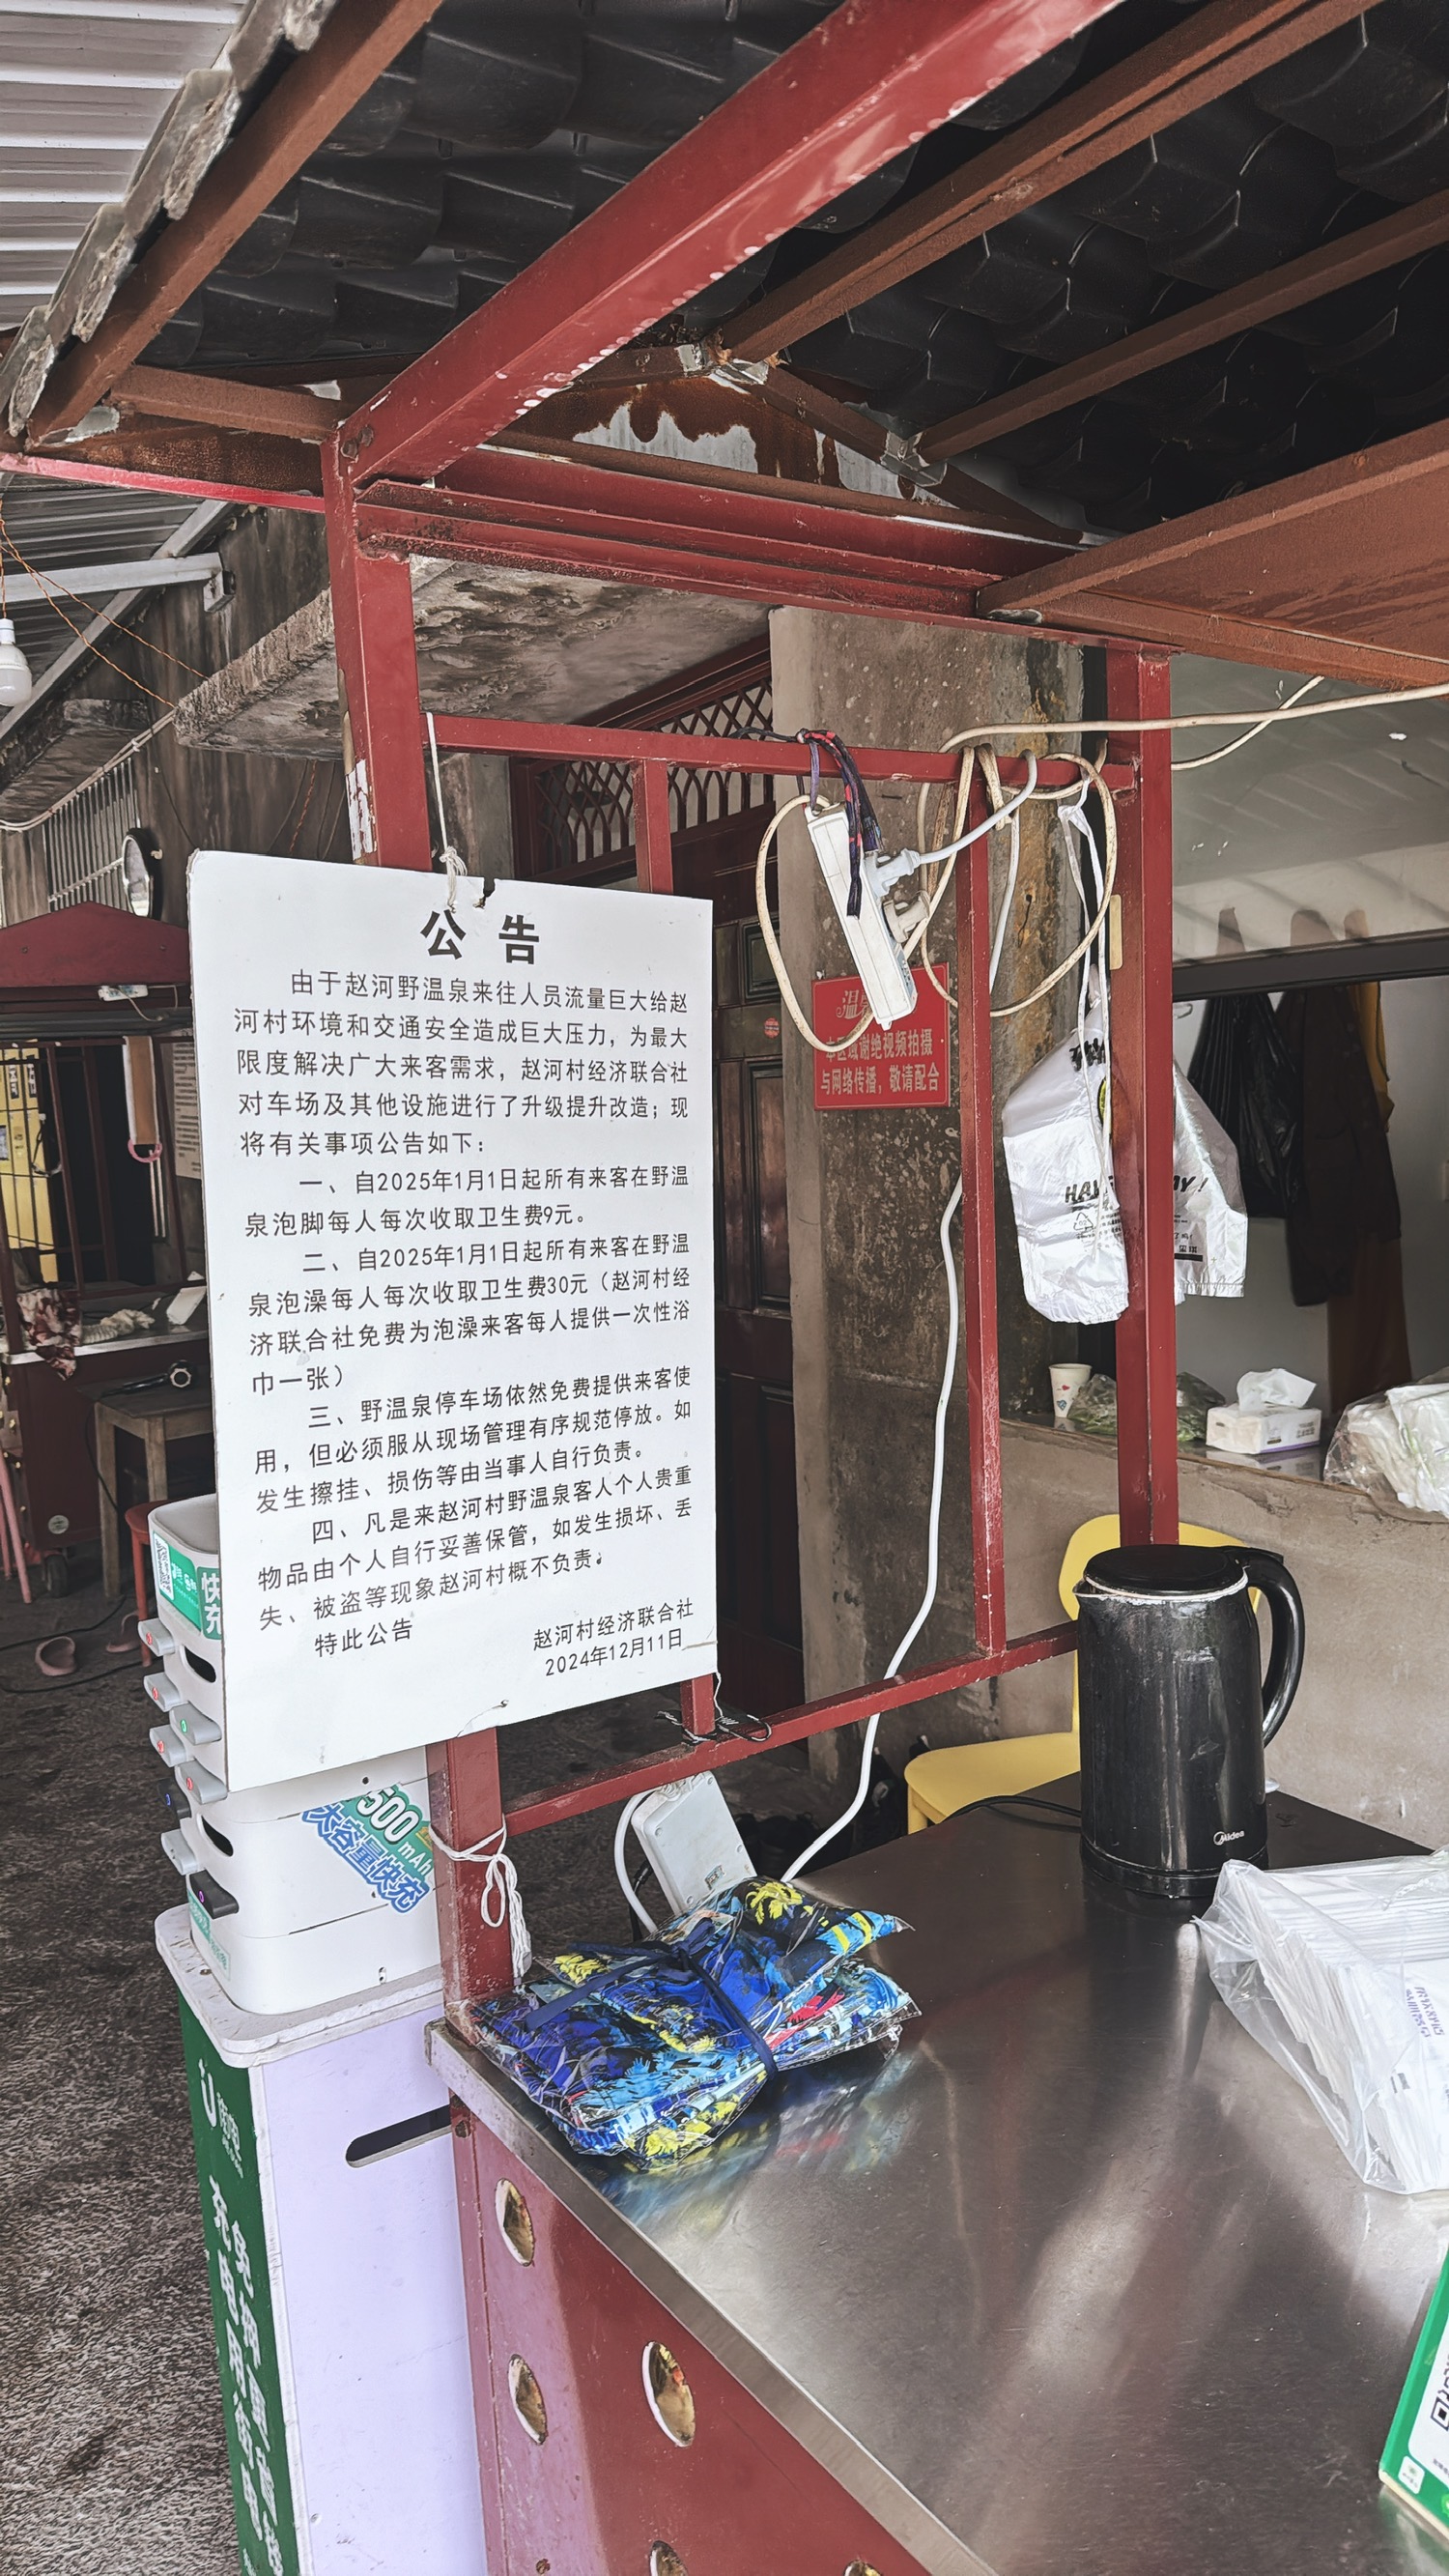 公 告
由于赵河野温泉来往人员流量巨大给赵
河村环境和交通安全造成巨大压力，为最大
限度解决广大来客需求，赵河村经济联合社
对车场及其他设施进行了升级提升改造；现
将有关事项公告如下：
一、自2025年1月1日起所有来客在野温
泉泡脚每人每次收取卫生费9元。
二、自2025年1月1日起所有来客在野温
泉泡澡每人每次收取卫生费30元（赵河村经
济联合社免费为泡澡来客每人提供一次性浴
巾一张）
三、野温泉停车场依然免费提供来客使
用，但必须服从现场管理有序规范停放。如
发生擦挂、损伤等由当事人自行负责。
四、凡是来赵河村野温泉客人个人贵重
物品由个人自行妥善保管，如发生损坏、丢
失、被盗等现象赵河村概不负责。
特此公告
赵河村经济联合社
2024年12月11日
温
本区域谢绝视频拍摄
与网络传播，敬请配合
快充
500
mAh
大容量快充
Midea